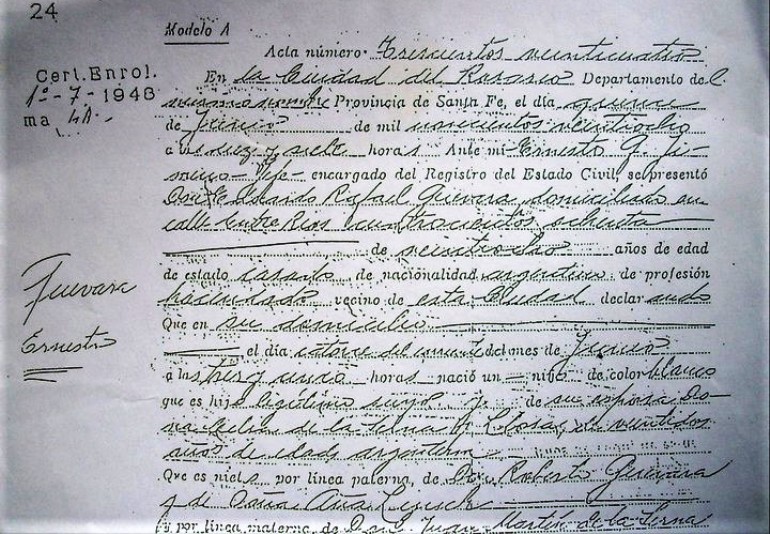 24
Modelo A
Acta número: Trescientos veinticuatro
Cert. Enrol.
1º-7-1946
ma
En la Ciudad del Rosario Departamento del
mismo nombre Provincia de Santa Fe, el día quince
de Junio de mil novecientos veintiocho
a las diez y siete horas Ante mi Ernesto
Jefe encargado del Registro del Estado Civil, se presentó
Don Ernesto Rafael Guevara domiciliado en
calle Entre Rios cuatrocientos ochenta
de veintiocho años de edad
de estado casado de nacionalidad argentino de profesión
hacendado vecino de esta Ciudad declarando
Que en su domicilio
el día catorce del del mes de Junio
a las tres y horas nació un niño de color blanco
que es hijo legítimo suyo y de su esposa Do-
ña Celia de la Serna y Llosa, de veintidos
años de edad argentina
Que es nieto por linea paterna, de Don Roberto Guevara
y de Doña Ana Lynch
y por linea materna de Don Juan Martín de la Serna
Guevara
Ernesto